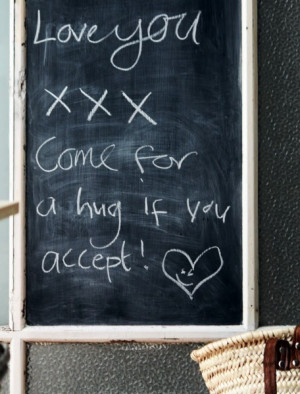 Love you
xxx
Come for
a hug if you
accept!